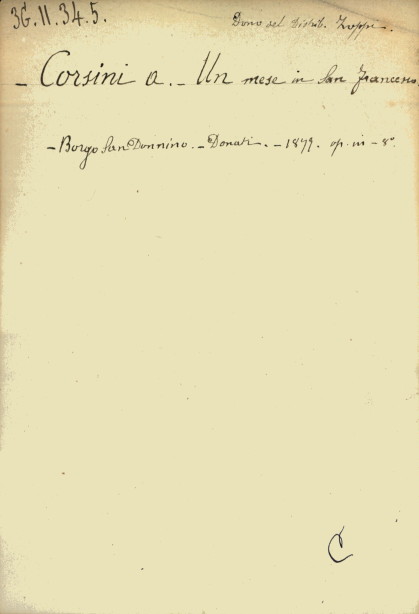 3G.II.34.5.
Dono del Distrib. Zoppi
– Corsini a. – Un mese in San Francesco.
– Borgo San Donnino. – Donati. – 1879. op. in – 8°.
C